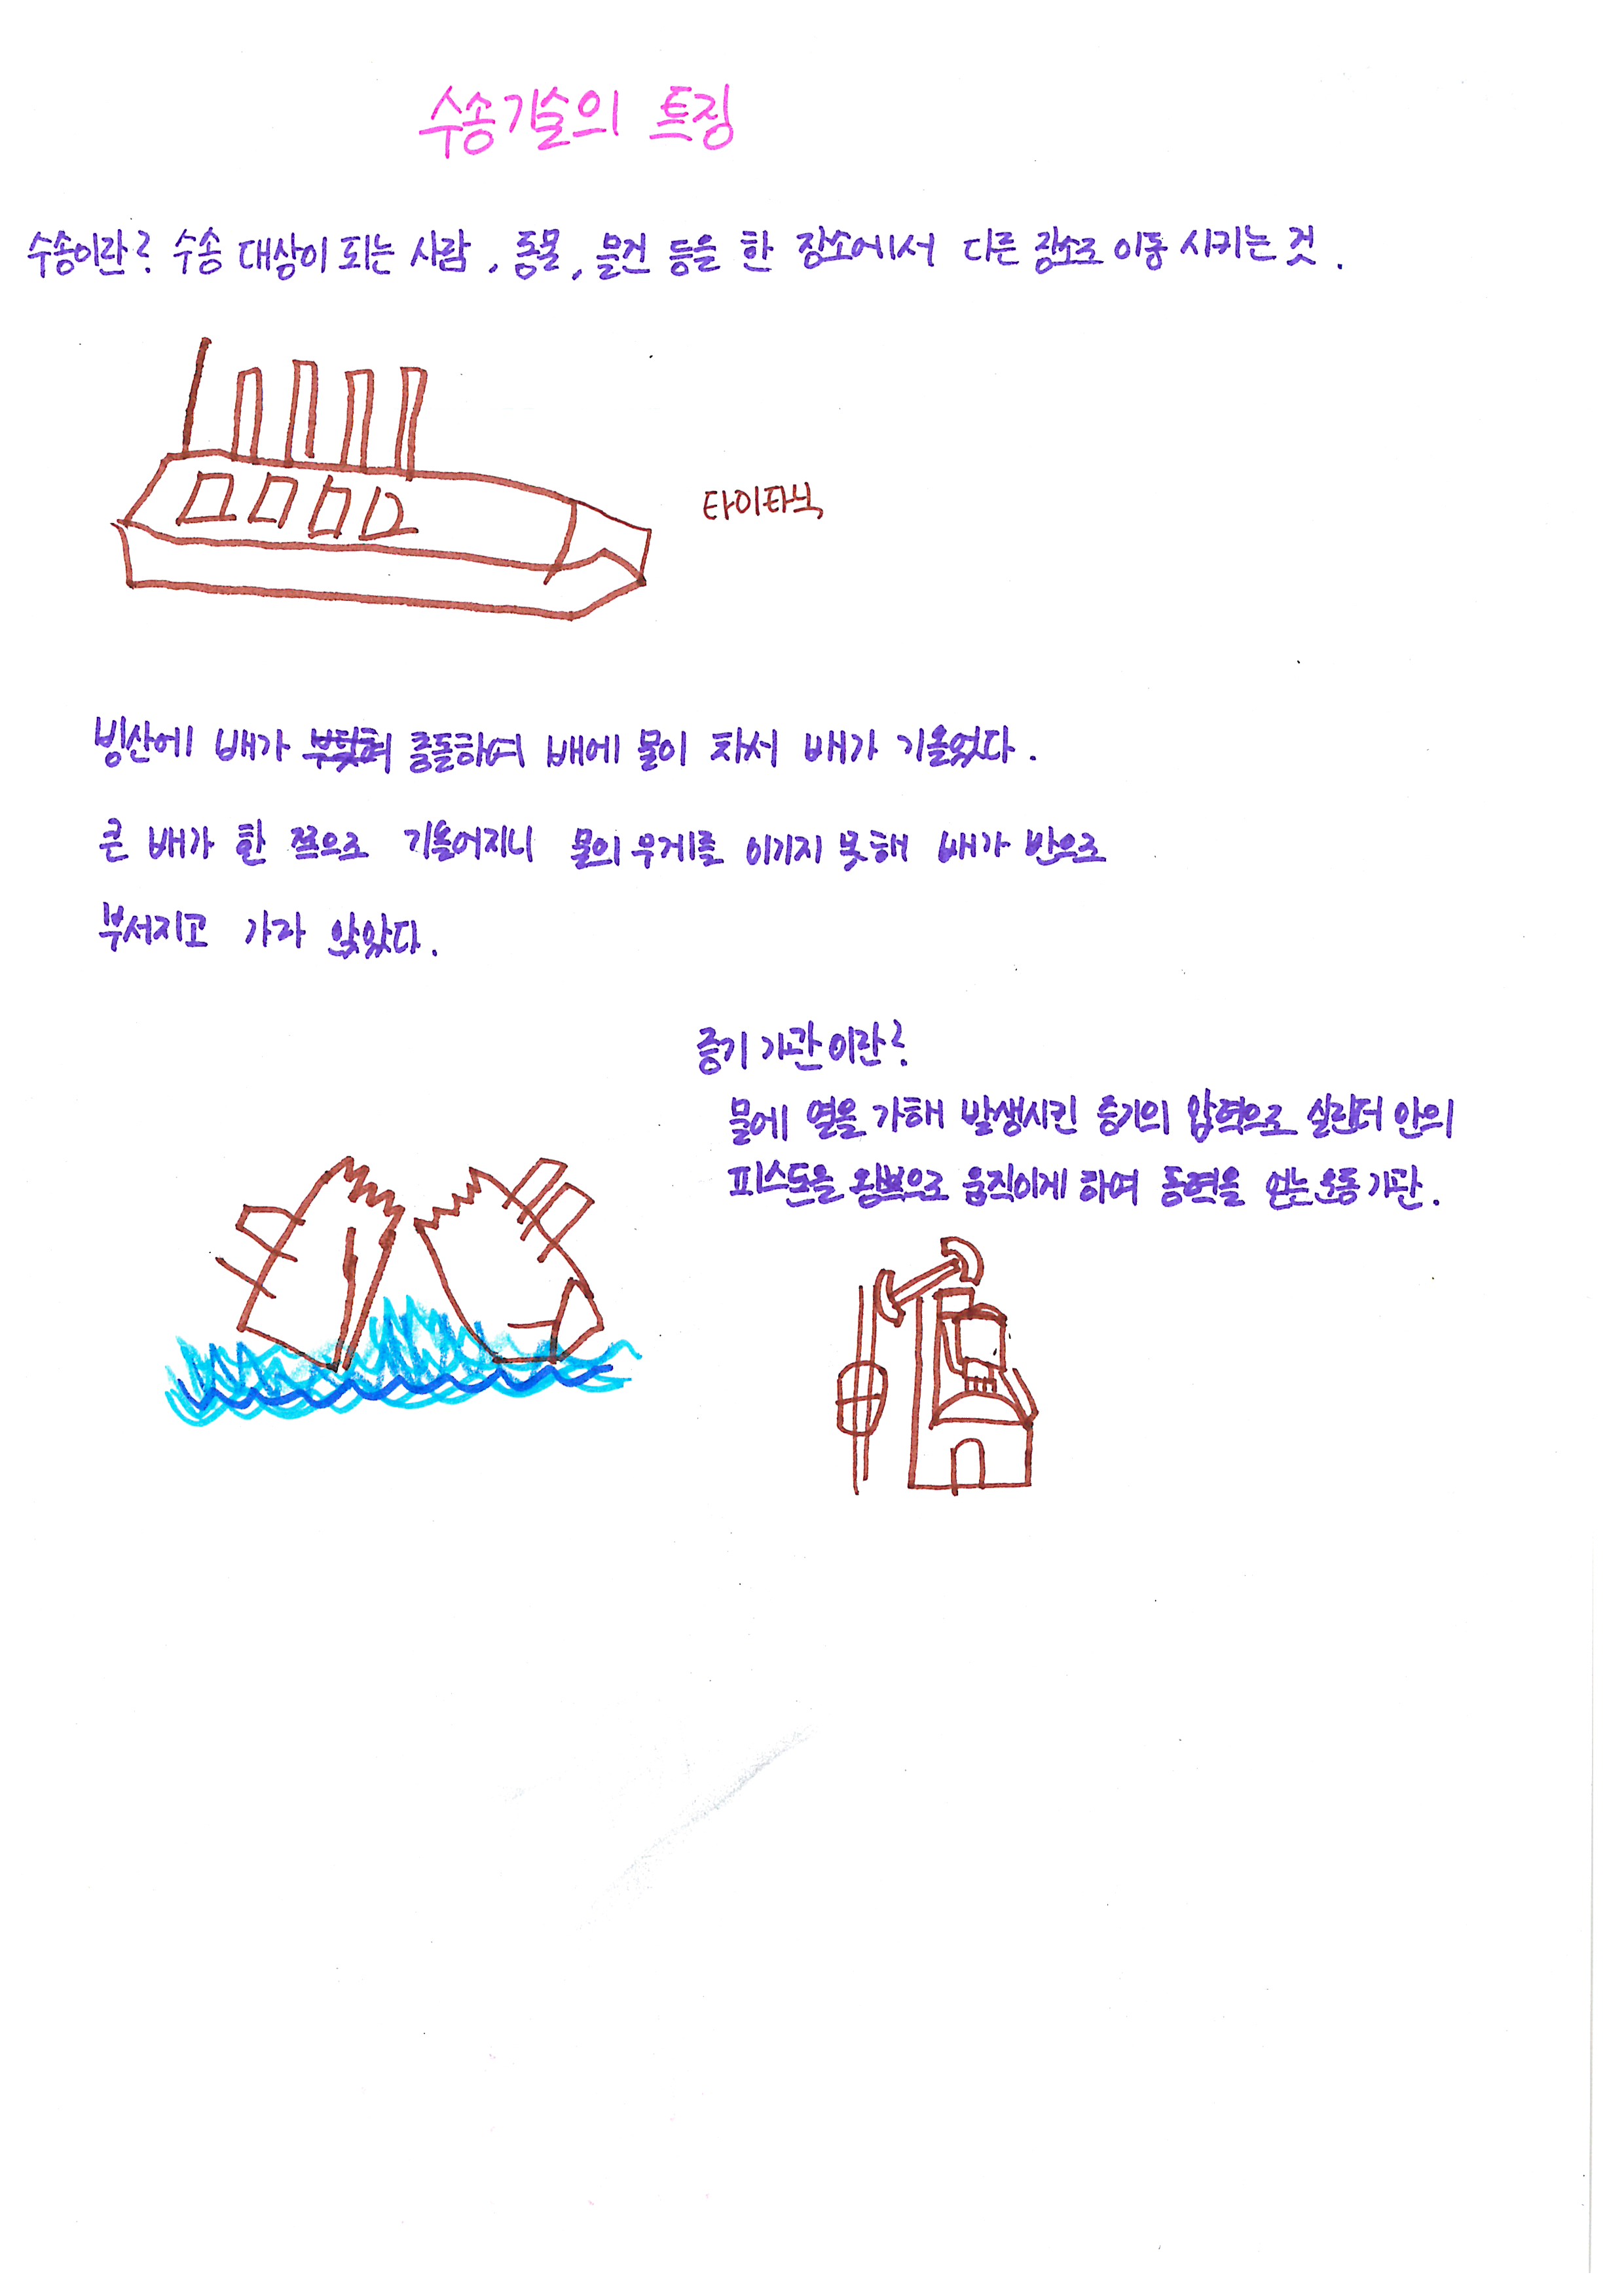 수송기술의 특징
수송이란? 수송 대상이 되는 사람, 동물, 물건 등을 한 장소에서 다른 장소로 이동 시키는 것.
타이타닉
빙산에 배가 충돌하여 배에 물이 차서 배가 기울었다.
큰 배가 한 쪽으로 기울어지니 물의 무게를 이기지 못해 배가 반으로
부서지고 가라 앉았다.
증기 기관이란?
물에 열을 가해 발생시킨 증기의 압력으로 실린더 안의
피스톤을 왕복으로 움직이게 하여 동력을 얻는 운동 기관.